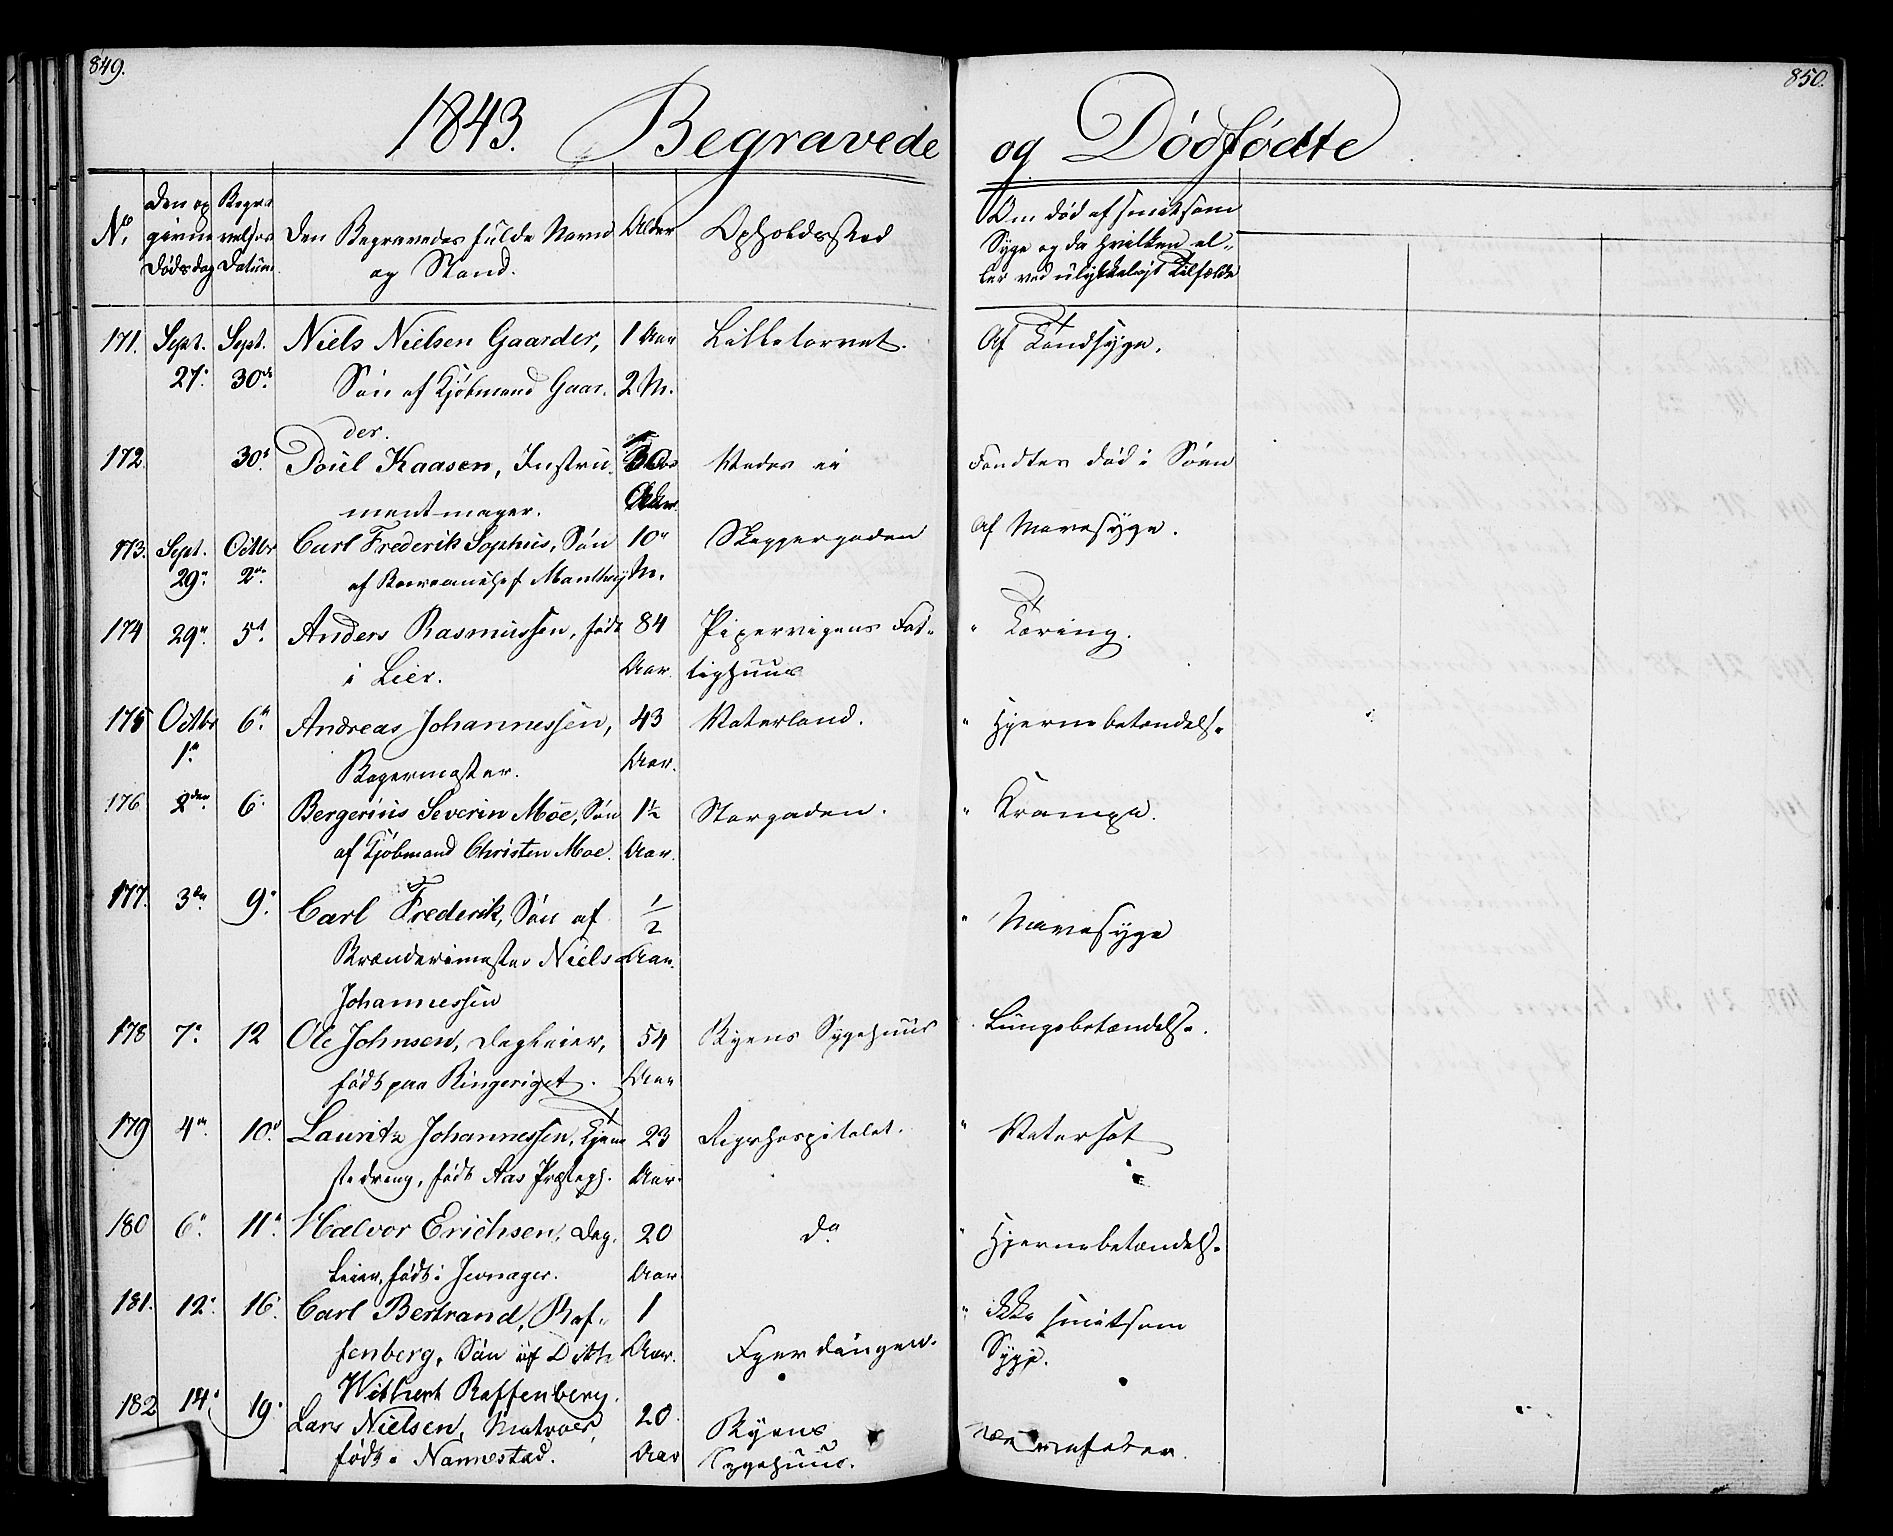 849.
850.
1843. Begravede og Dødfødte
No. Den op givne Dødsdag Begra velses Datum Den Begravedes fulde Navn og Stand. Alder Opholdssted Om død af smitsom Syge og da hvilken el- ler ved ulykkeligt Tilfælde
171. Sept. Sept. Niels Nielsen Gaarder, 1 Aar Lilletorvet. Af Tandsyge.
27. 30. Søn af Kjøbmand Gaar- 2 M.
der.
172. 30. Poul Kaasen, Instru- Vedes ei Fandtes død i Søen
mentmager.
173. Sept. Octbr Carl Frederik Sophus, Søn 10 Skippergaden Af Mavesyge.
29. 2. af Manthey M.
174 29. 5. Anders Rasmussen, født 84 Pipervigens Fat- " Tæring.
i Lier. Aar. tighuus
175 Octbr 6. Andreas Johannessen, 43 Vaterland. " Hjernebetændelse
1. Bagermester. Aar.
176 2den 6. Bergerius Severin Moe, Søn 1½ Storgaden. " Krampe.
af Kjøbmand Christen Moe. Aar.
177. 3. 9. Carl Frederik, Søn af ½ " Mavesyge
Brænderimester Niels Aar.
Johannessen
178 7. 12 Ole Johnsen, Dagleier, 54 Byens Sygehuus " Lungebetændelse.
født paa Ringeriget. Aar
179 4. 10. Lauritz Johannessen, Tjene- 23 Rigshospitalet. " Vatersot
stedreng, født Aas Præstegj. Aar.
180 6. 11. Halvor Erichsen, Dag- 20 do " Hjernebetændelse
leier, født i Jevnager. Aar.
181. 12. 16. Carl Bertrand, Raf- 1 " Ikke smitsom
fenberg, Søn af Aar. Fjerdingen. Syge.
Raffenberg.
182 14. 19. Lars Nielsen, Matros, 20 Byens Nervefeber.
født i Nannestad. Aar Sygehuus.